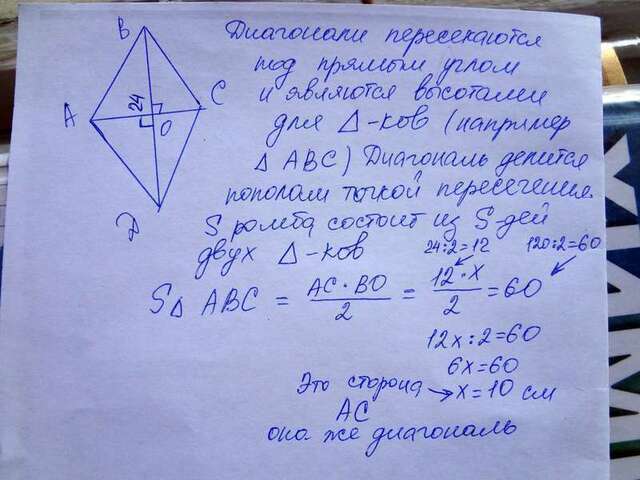 B
A
C
24
O
D
Диагонали пересекаются
под прямым углом
и являются высотами
для Δ-ков (например
Δ ABC) Диагональ делится
пополам точкой пересечения.
S ромба состоит из S дей
двух Δ-ков
24:2=12 120:2=60
SΔ ABC = AC·BO/2 = 12·x/2 = 60
12x:2=60
6x=60
Это сторона → x=10 см
AC
она же диагональ